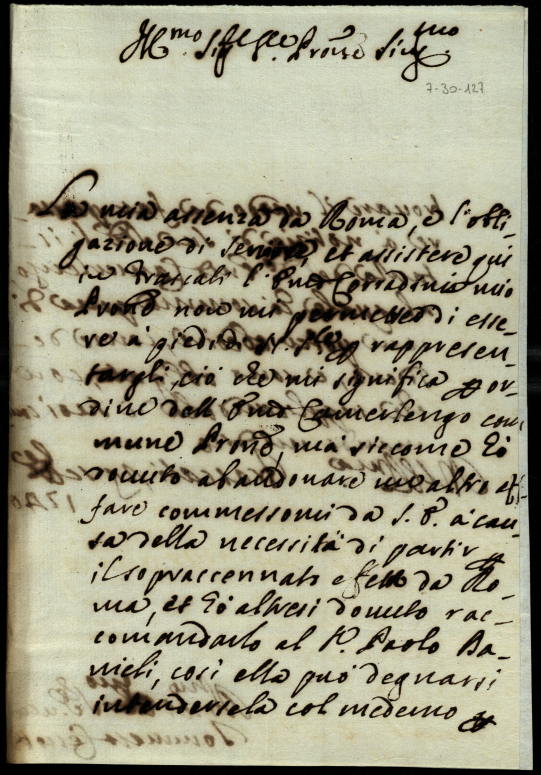 Ill.mo Sig.re P.rone Sig.mo
7-30-127
La mia assenza da Roma, e l'obli-
gazione di servire, et assistere qui
in Frascati l'Em.o Corradini mio
Prone non mi permette di esse-
re a' piedi di rappresen-
targli, ciò che mi significa or-
dine dell' Em.o Camerlengo com
mune Prone, ma siccome hò
dovuto abandonare un altro af-
fare commessomi da S. B. à cau-
sa della necessità di partir
il sopraccennato effetto da Ro-
ma, et hò altresi dovuto rac-
comandarlo al P. Paolo Da-
nieli, così ella può degnarsi
intendersela col medemo